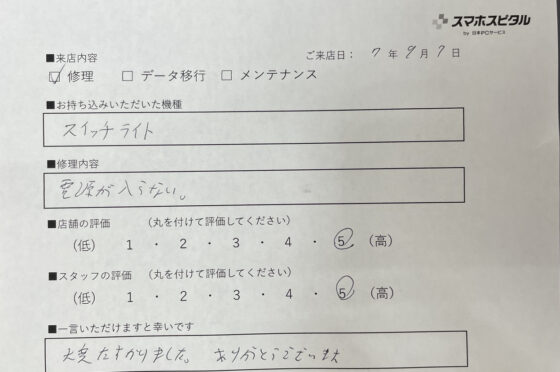 スマホスピタル
by 日本PCサービス
■来店内容
ご来店日： 7 年 9 月 7 日
☑ 修理 □ データ移行 □ メンテナンス
■お持ち込みいただいた機種
スイッチライト
■修理内容
電源が入らない。
■店舗の評価 （丸を付けて評価してください）
（低） 1 ・ 2 ・ 3 ・ 4 ・ 5 （高）
■スタッフの評価 （丸を付けて評価してください）
（低） 1 ・ 2 ・ 3 ・ 4 ・ 5 （高）
■一言いただけますと幸いです
大変たすかりました。 ありがとうございます